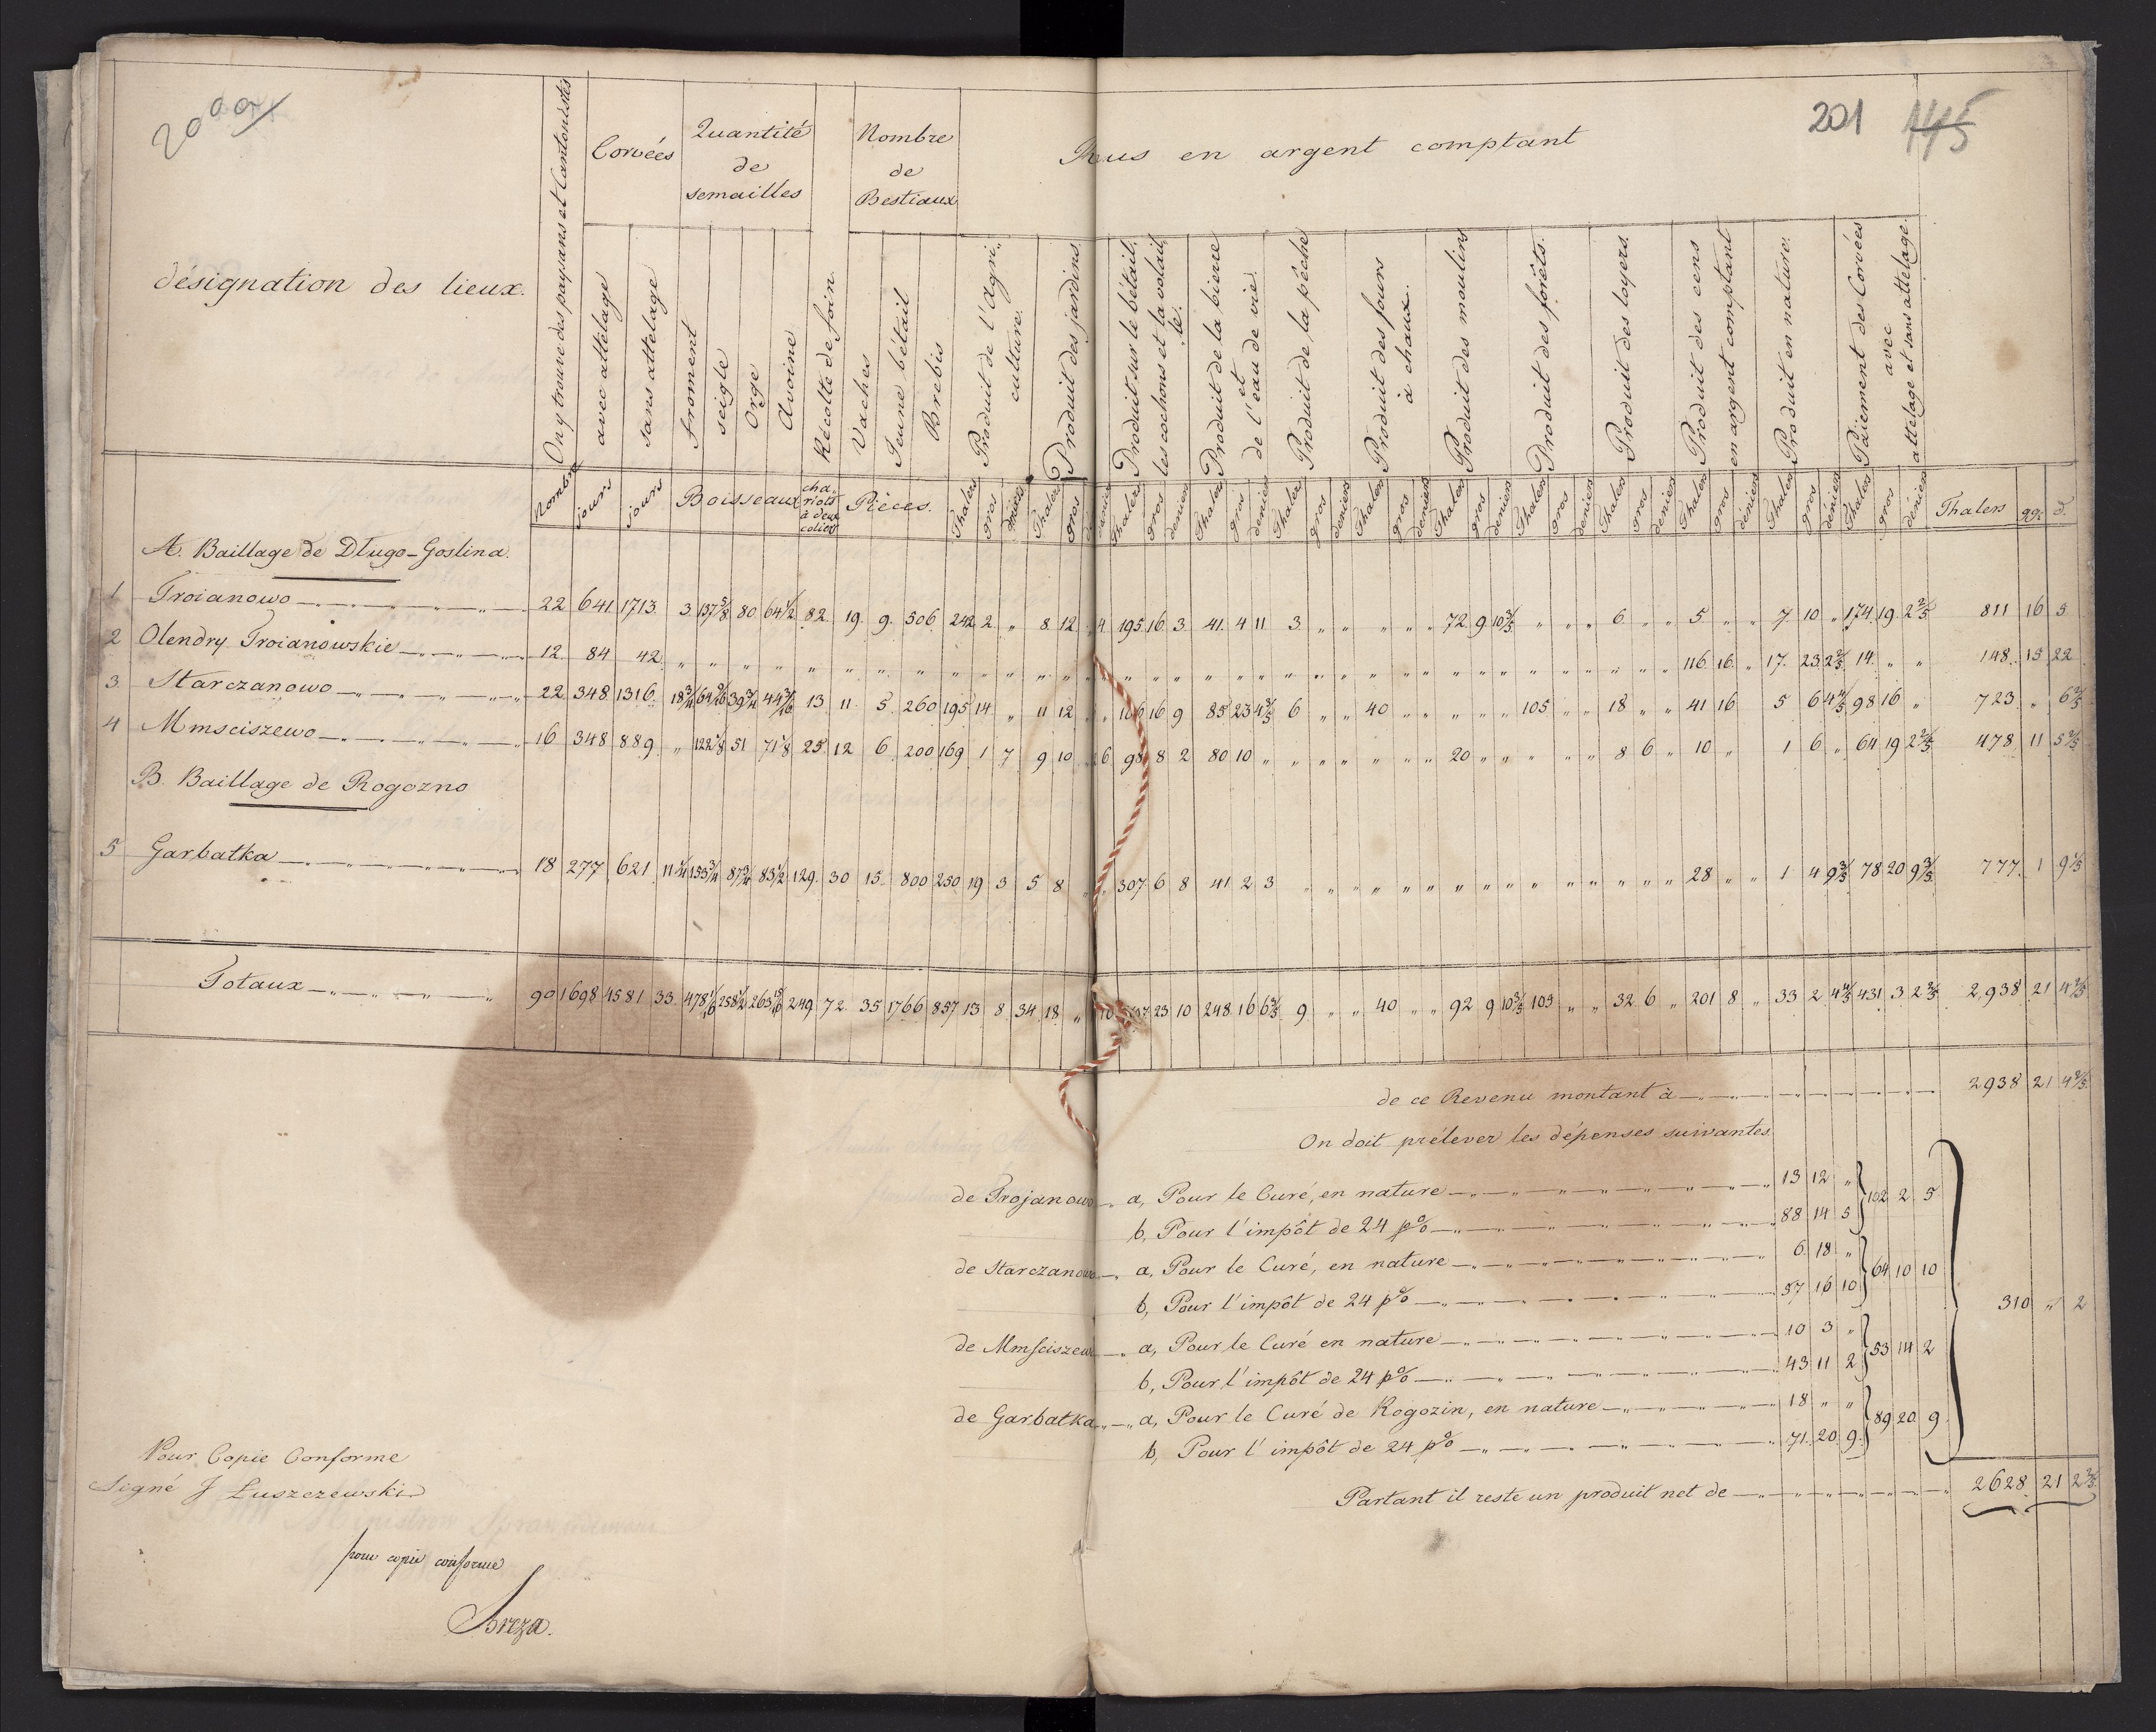 200a
201 145
désignation des lieux.
On y trouve des paysans et Cantonistes
Corvées
avec attelage
sans attelage
Quantité
de
semailles
froment
seigle
Orge
Avoine
Récolte de foin
Nombre
de
Bestiaux
Vaches
Jeune bétail
Brebis
en argent comptant
Produit de l'Agri„
culture.
Produit des jardins.
Produit sur le bétail,
les cochons et la volail„
le.
Produit de la bierre
et
de l'eau de vie.
Produit de la pêche
Produit des fours
à chaux.
Produit des moulins
Produit des forêts.
Produit des loyers.
Produit des cens
en argent comptant
Produit en nature.
Païement des Corvées
avec
attelage et sans attelage.
Nombre jours jours Boisseaux cha„ riots à deux coliers Pièces. Thalers gros deniers Thalers gros Thalers gros deniers Thalers gros deniers Thalers gros deniers Thalers gros deniers Thalers gros deniers Thalers gros deniers Thalers gros deniers Thalers gros deniers Thalers gros deniers Thalers gros deniers Thalers ggr d.
A. Baillage de Długo-Goslina.
1 Troianowo 22 641 1713 3 137 5/8 80 64 1/2 82 19 9 506 242 2 „ 8 12 4 195 16 3 41 4 11 3 „ „ „ „ „ 72 9 10 3/5 „ „ „ 6 „ „ 5 „ „ 7 10 „ 174 19 2 2/5 811 16 3
2 Olendry Troianowskie 12 84 42 „ „ „ „ „ „ „ „ „ „ „ „ „ „ „ „ „ „ „ „ „ „ „ „ „ „ „ „ „ „ „ „ „ „ „ 116 16 „ 17 23 2 2/5 14 „ „ 148 15 22
3 Starczanowo 22 348 1316 18 3/4 64 9/16 39 3/4 44 3/16 13 11 5 260 195 14 „ 11 12 „ 106 16 9 85 23 4 3/5 6 „ „ 40 „ „ „ „ „ 105 „ „ 18 „ „ 41 16 5 6 4 4/5 98 16 „ 723 „ 6 2/5
4 Mmsciszewo 16 348 889 „ 122 1/8 51 71 1/8 25 12 6 200 169 1 7 9 10 6 98 8 2 80 10 „ „ „ „ „ „ „ 20 „ „ „ „ „ 8 6 „ 10 „ 1 6 „ 64 19 2 2/5 478 11 5 2/5
B. Baillage de Rogozno
5 Garbatka 18 277 621 11 1/4 153 3/4 87 3/4 83 1/2 129 30 15 800 250 19 3 5 8 „ 307 6 8 41 2 3 „ „ „ „ „ „ „ „ „ „ „ „ „ „ „ 28 „ „ 1 4 9 3/5 78 20 9 3/5 777 1 9 1/5
Totaux 90 1698 4581 33 478 1/16 258 1/2 263 15/16 249 72 35 1766 857 13 8 34 18 „ 23 10 248 16 6 3/5 9 „ „ 40 „ „ 92 9 10 3/5 105 „ „ 32 6 „ 201 8 „ 33 2 4 4/5 431 3 2 2/5 2,938 21 4 2/5
de ce Revenu montant à 2938 21 4 2/5
On doit prélever les dépenses suivantes
de Trojanowo a, Pour le Curé, en nature 13 12 „
b, Pour l'impôt de 24 p% 88 14 5 102 2 5
de Starczanowo a, Pour le Curé, en nature 6 18 „
b, Pour l'impôt de 24 p% 57 16 10 64 10 10
310 „ 2
de Mmsciszewo a, Pour le Curé en nature 10 3 „
b, Pour l'impôt de 24 p% 43 11 2 53 14 2
de Garbatka a, Pour le Curé de Rogozin, en nature 18 „ „
b, Pour l'impôt de 24 p% 71 20 9 89 20 9
Partant il reste un produit net de 2628 21 2 2/5
Pour Copie Conforme
Signé J Łuszczewski
pour copie conforme
Breza.